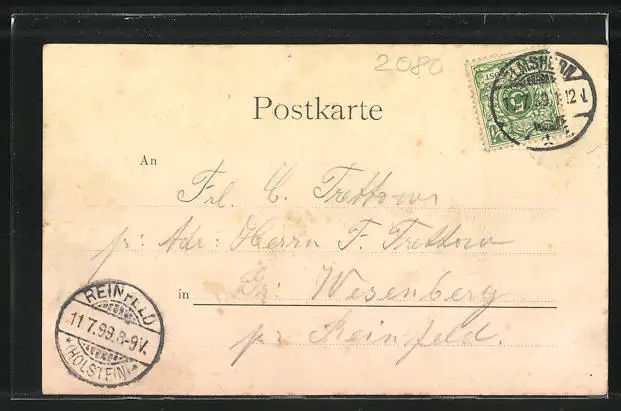 2080
ELMSHORN
12 V.
Postkarte
An
Frl. C. Trettow
pr: Adr: Herrn F. Trettow
in Gr: Wesenberg
pr Reinfeld.
REINFELD
11 7.99.8-9V.
*(HOLSTEIN)*